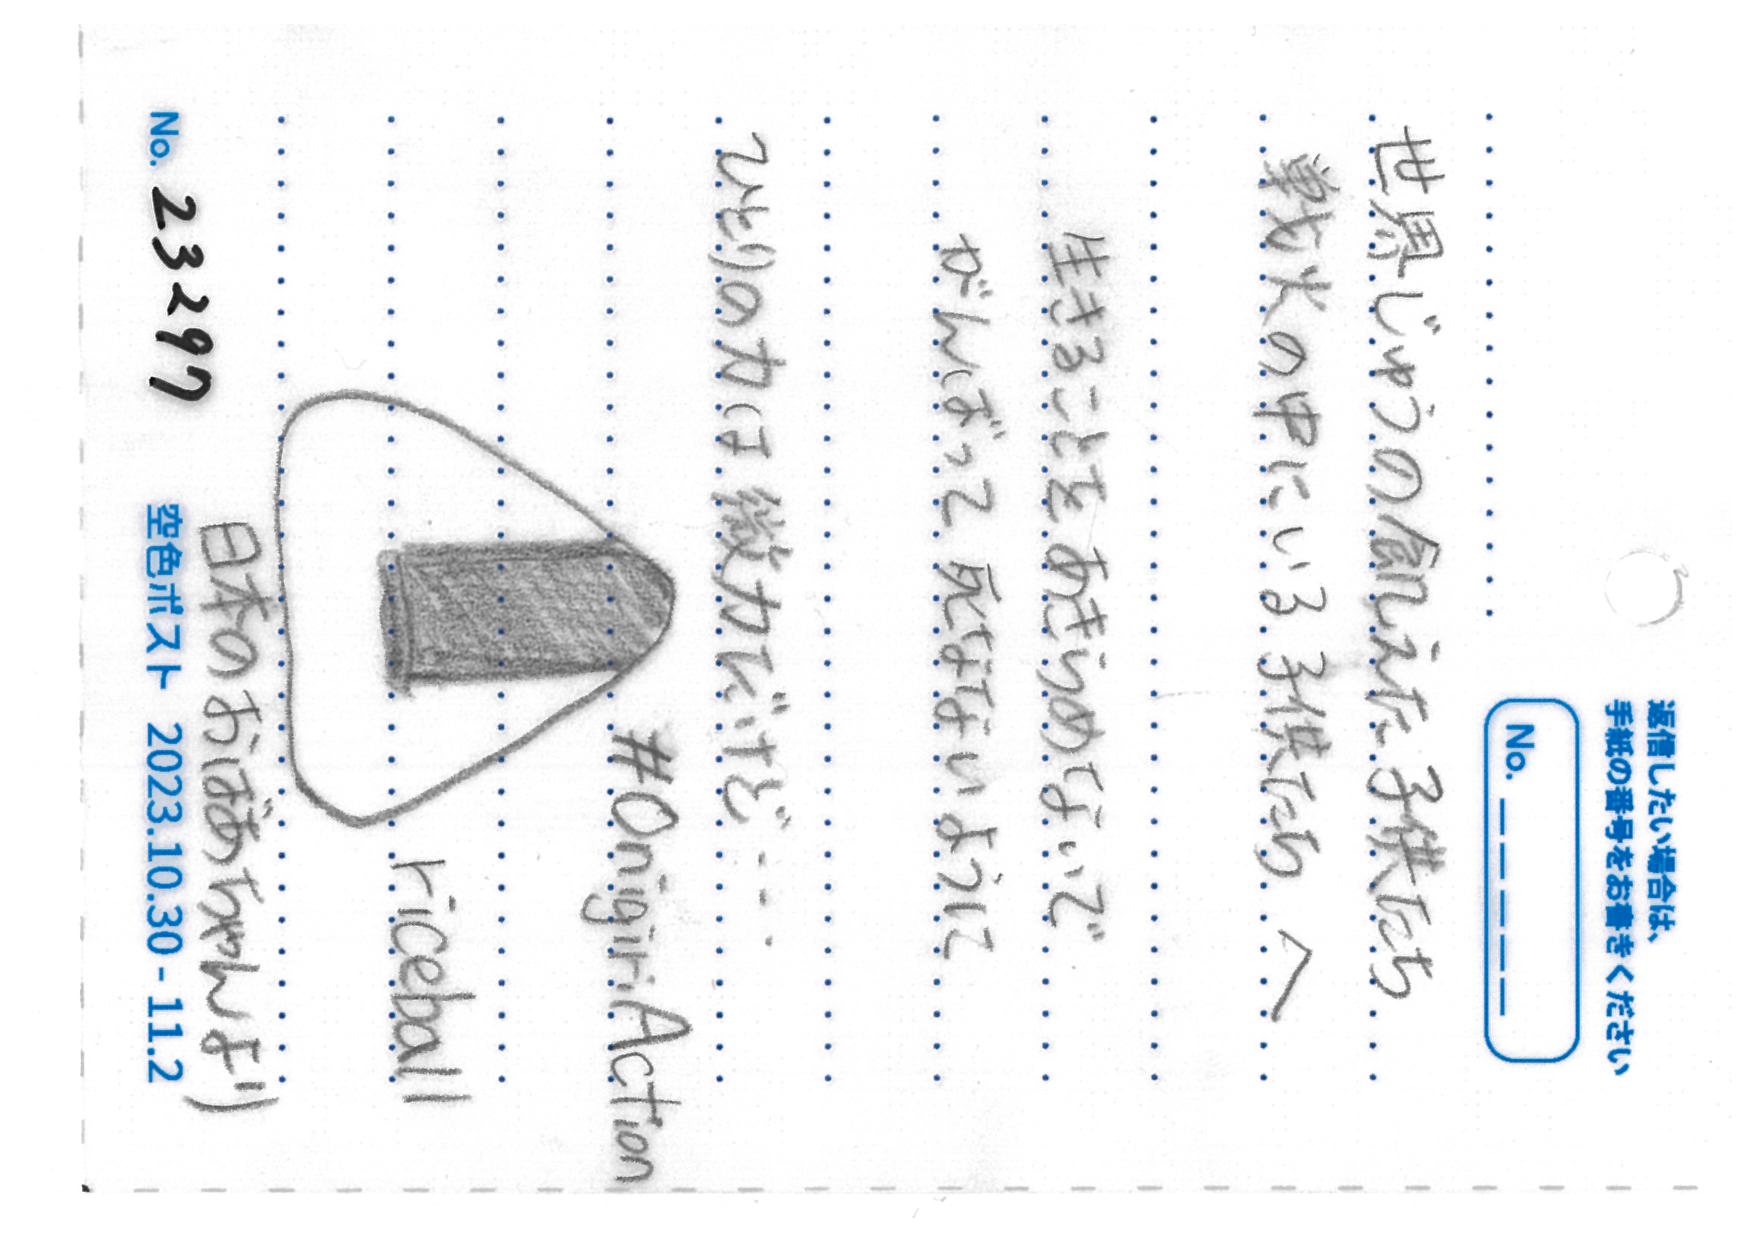 返信したい場合は、
手紙の番号をお書きください
No. _ _ _ _ _
世界じゅうの飢えた子供たち
戦火の中にいる子供たち へ
生きることをあきらめないで
がんばって 死なないように
ひとりの力は微力だけど・・・
#OnigiriAction
riceball
日本のおばあちゃんより
No. 23297
空色ポスト 2023.10.30 - 11.2